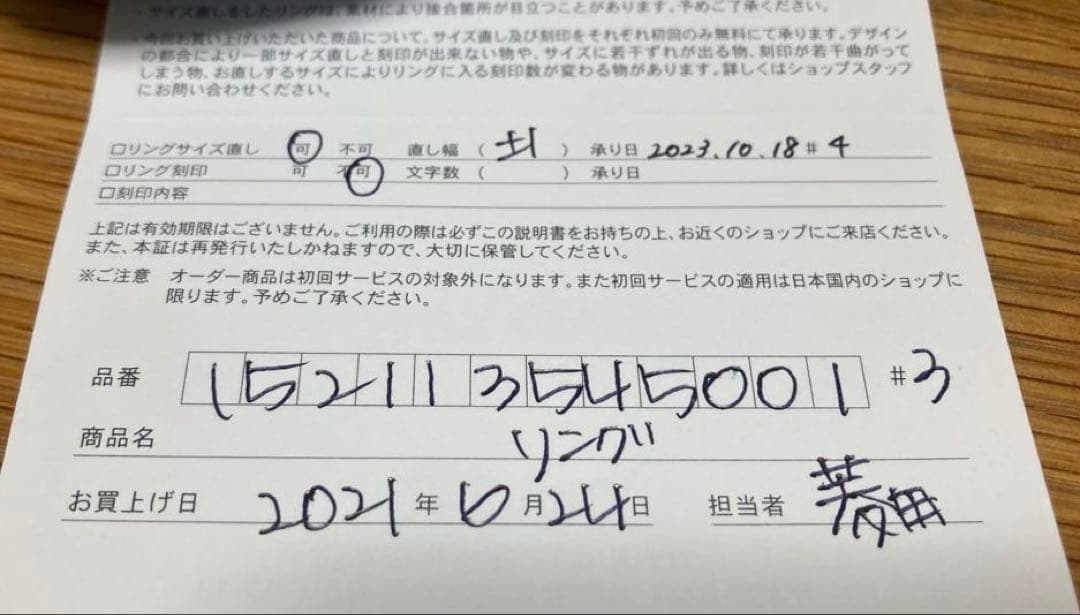 ・サイズ直しをしたリングは、素材により接合箇所が目立つことがあります。予めご了承ください。
・今回お買い上げいただいた商品について、サイズ直し及び刻印をそれぞれ初回のみ無料にて承ります。デザイン
の都合により一部サイズ直しと刻印が出来ない物や、サイズに若干ずれが出る物、刻印が若干曲がって
しまう物、お直しするサイズによりリングに入る刻印数が変わる物があります。詳しくはショップスタッフ
にお問い合わせください。
□リングサイズ直し 可 不可 直し幅 ( ±1 ) 承り日 2023.10.18 #4
□リング刻印 可 不可 文字数 ( ) 承り日
□刻印内容
上記は有効期限はございません。ご利用の際は必ずこの説明書をお持ちの上、お近くのショップにご来店ください。
また、本証は再発行いたしかねますので、大切に保管してください。
※ご注意 オーダー商品は初回サービスの対象外になります。また初回サービスの適用は日本国内のショップに
限ります。予めご了承ください。
品番 152113545001 #3
商品名 リング
お買上げ日 2021年6月24日 担当者 菱田